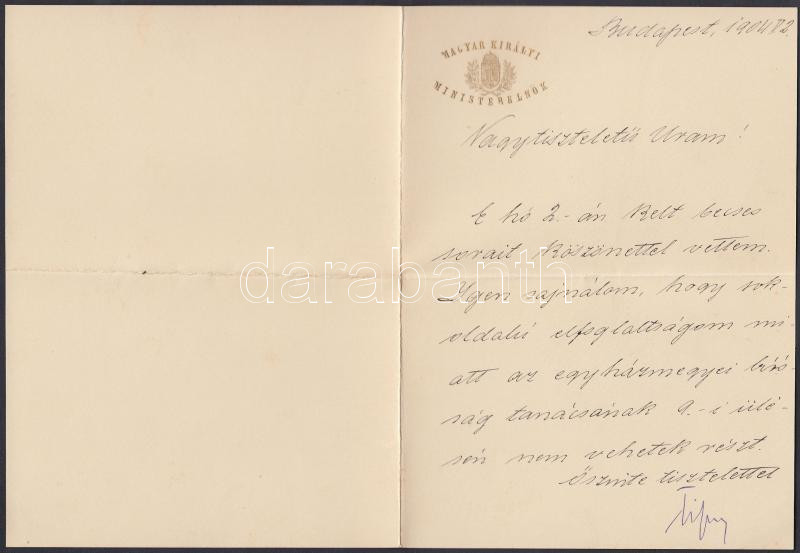 Budapest, 1904
MAGYAR KIRÁLYI
MINISTERELNÖK
Nagytiszteletű Uram!
E hó 2.-án kelt becses
sorait köszönettel vettem.
Igen sajnálom, hogy sok-
oldalú elfoglaltságom mi-
att az egyházmegyei bíró-
ság tanácsának 9.-i ülé-
sén nem vehetek részt.
Őszinte tisztelettel
Tisza
darabanth